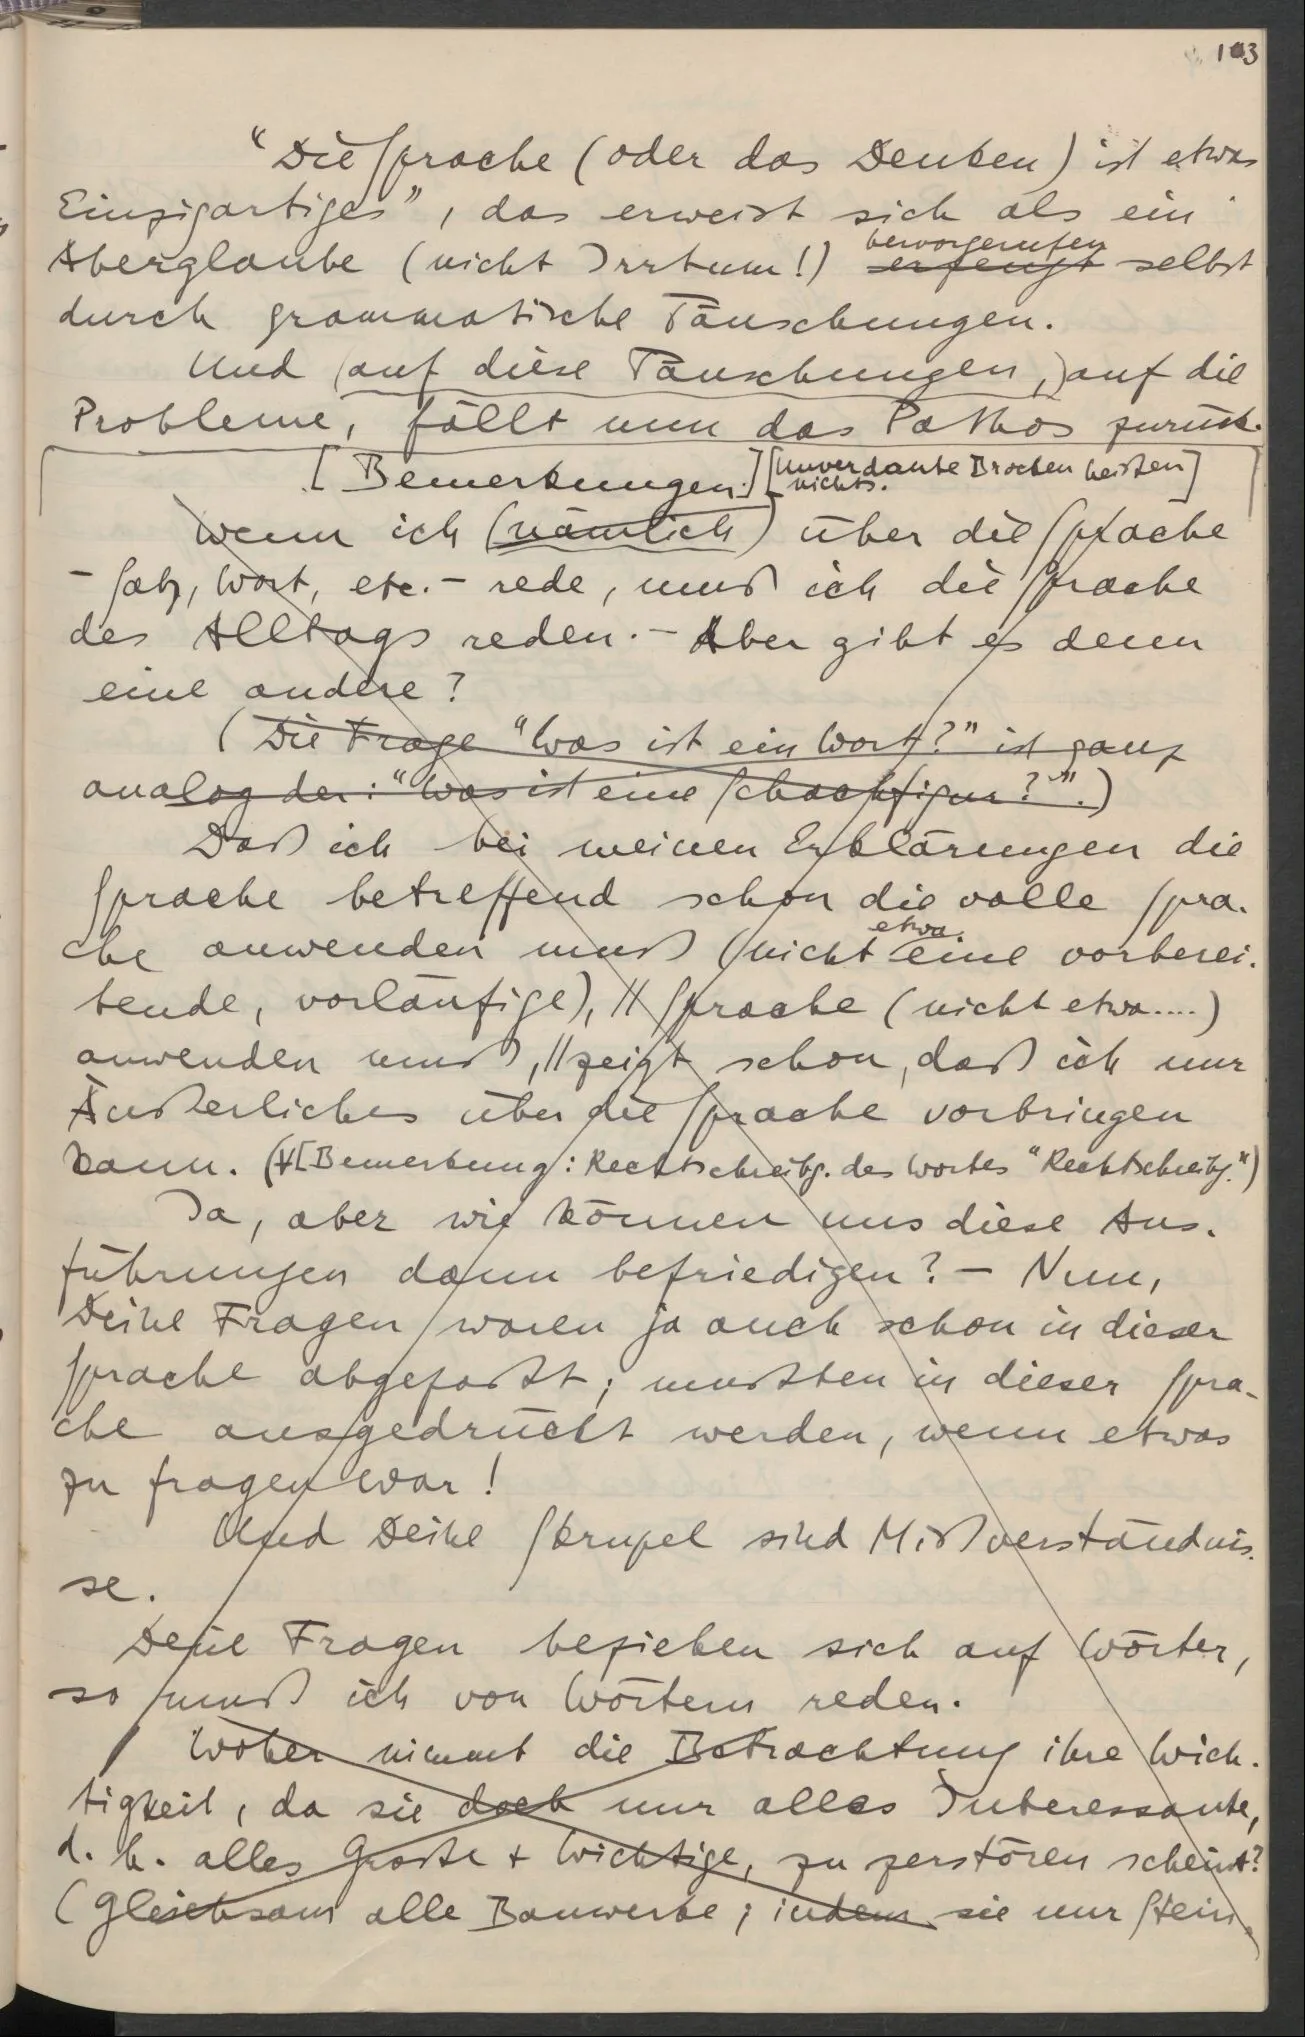 103
"Die Sprache (oder das Denken) ist etwas
Einzigartiges", das erweist sich als ein
Aberglaube (nicht Irrtum!) hervorgerufen erzeugt selbst
durch grammatische Täuschungen.
Und (auf diese Täuschungen,) auf die
Probleme, fällt nun das Pathos zurück.
[Bemerkungen.] [Unverdaute Brocken heißen
nichts.]
Wenn ich (nämlich) über die Sprache
– Satz, Wort, etc. – rede, muß ich die Sprache
des Alltags reden. – Aber gibt es denn
eine andere?
(Die Frage "Was ist ein Wort?" ist ganz
analog der: "Was ist eine Schachfigur?".)
Daß ich bei meinen Erklärungen die
Sprache betreffend schon die volle Spra-
che anwenden muß (nicht etwa eine vorberei-
tende, vorläufige), // Sprache (nicht etwa....)
anwenden muß, // zeigt schon, daß ich nur
Äußerliches über die Sprache vorbringen
kann. ([Bemerkung: Rechtschreibg. des Wortes "Rechtschreibg.")
Ja, aber wie können uns diese Aus-
führungen dann befriedigen? – Nun,
Deine Fragen waren ja auch schon in dieser
Sprache abgefaßt; mußten in dieser Spra-
che ausgedrückt werden, wenn etwas
zu fragen war!
Und Deine Skrupel sind Mißverständnis-
se.
Deine Fragen beziehen sich auf Wörter,
so muß ich von Wörtern reden.
Woher nimmt die Betrachtung ihre Wich-
tigkeit, da sie doch nur alles Interessante,
d. h. alles Große + Wichtige, zu zerstören scheint?
(Gleichsam alle Bauwerke; indem sie nur Stein-